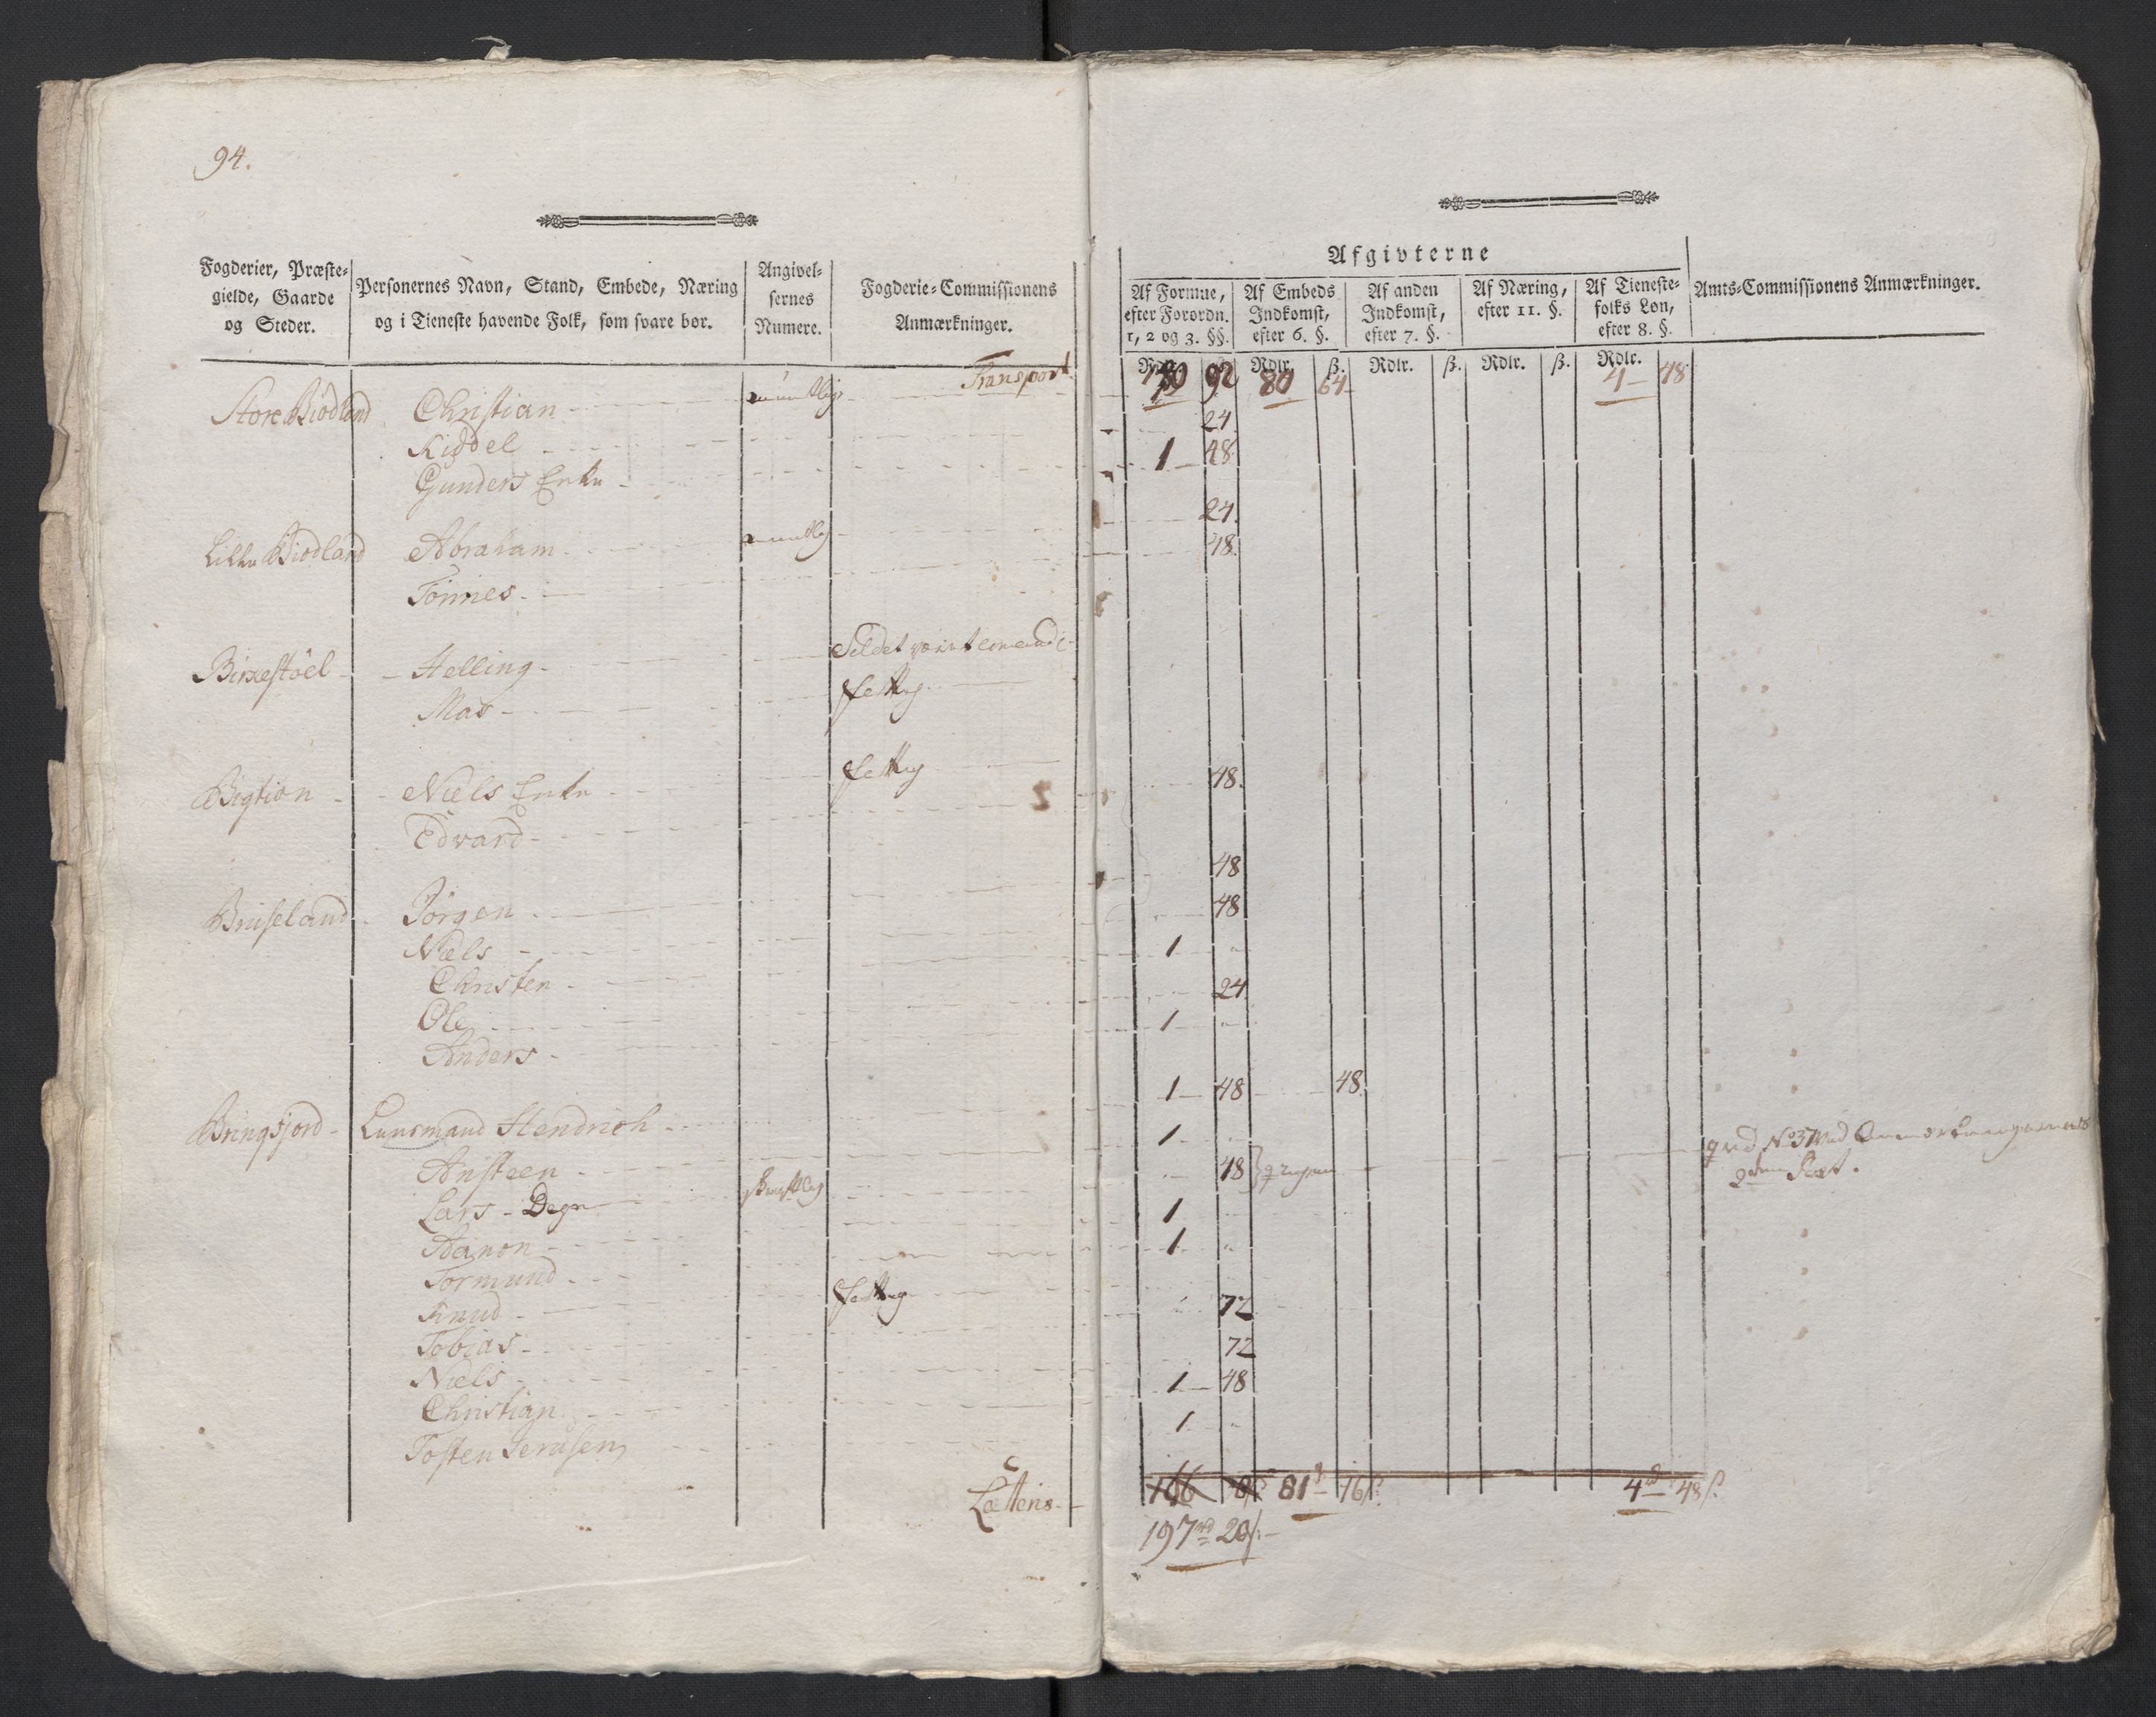 94.
Fogderier, Præste-
gielde, Gaarde
og Steder.
Personernes Navn, Stand, Embede, Næring
og i Tieneste havende Folk, som svare bør.
Angivel-
sernes
Numere.
Fogderie-Commissionens
Anmærkninger.
Transport
Store Biodland Christian
Kiddel
Gunders Enke
Lille Biodland Abraham
Tönnes
Birkestöel Helling
Mas
fattig
Bigtion Niels Enke fattig
Edvard
Bruseland Jörgen
Niels
Christen
Ole
Anders
Bringsjord Lensmand Hendrich
Ansteen
Lars - Degn
Aanon
Tormund
Knud fattig
Tobias
Niels
Christian
Tosten
Latteris
Afgivterne
Af Formue,
efter Forordn.
1, 2 og 3. §§.
Af Embeds
Indkomst,
efter 6. §.
Af anden
Indkomst,
efter 7. §.
Af Næring,
efter 11. §.
Af Tieneste-
folks Løn,
efter 8. §.
Amts-Commissionens Anmærkninger.
Rdlr. ß. Rdlr. ß. Rdlr. ß. Rdlr.
92 80 64 4 48
24
1 48
24
48
48
48
48
1
24
1
1 48 48
1
48
1
1
72
72
1 48
1
166 81 16 ß 4 48 ß
197 rd 20 ß
No 37